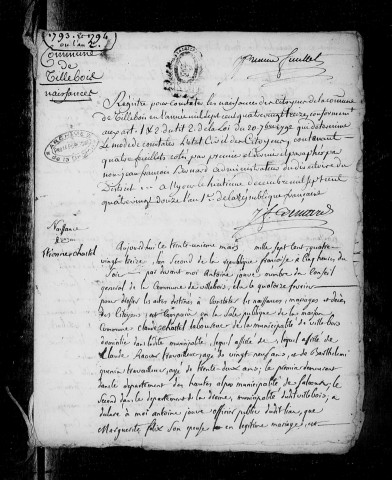 1793. et 1794
ou l'an 2.
Commune
de
Villebois
naissances
premier feuillet
Registre pour constater les naissances des Citoyens de la commune
de Villebois en l'année mil sept cent quatre vingt treize, conformément
aux part. 1 & 2 du tit 2 de la Loi du 20 7bre 1792 qui détermine
le mode de constater l'état Civil des Citoyens, contenant
quatre feuillets cotés par premier et dernier et paraphés par
nous jean françois Bonard administrateur du directoire du
District à Nyons le huit decembre mil sept cent
quatre vingt Douze l'an 1er de la République française
Naissance
Etienne chastel
Aujourdhui le trente unieme mars mille sept cent quatre
vingt treize, l'an second de la république française à cinq heures du
soir par devant moi Antoine jauve membre du Conseil
general de la Commune de villebois, élu le quatorze fevrier
pour dresser les actes destinés à Constater les naissances, mariages et décès
des Citoyens, est Comparu en la Sale publique de la maison
Commune Claude chastel laboureur de la municipalité de villebois
domicilié dans ladite municipalité, lequel assisté de
Claude travailleur, agé de vingt neuf ans, et de Barthelemi
travailleur, agé de trente deux ans, le premier demeurant
dans le departement des hautes alpes municipalité de
second dans le departement de la drome, municipalité dudit villebois, a
declaré à moi antoine jauve officier public dudit lieu, que
Marguerite felix son epouse en legitime mariage, est